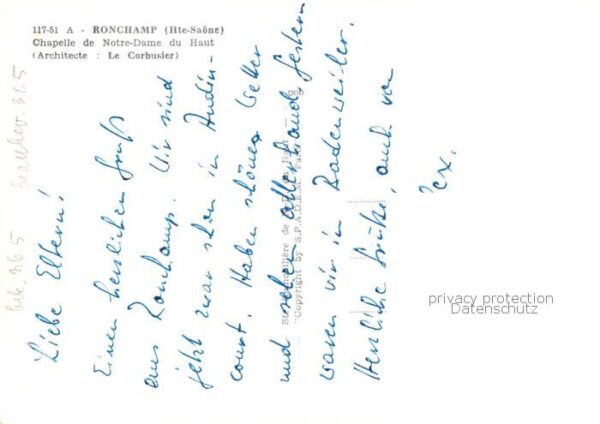 117-51 A - RONCHAMP (Hte-Saône)
Chapelle de Notre-Dame du Haut
(Architecte : Le Corbusier)
Liebe Eltern!
Einen herzlichen Gruß
aus Ronchamp. Wir sind
jetzt zwar schon in Audin-
court. Haben schönes Wetter
und sehen allerhand, gestern
waren wir in Badenweiler.
Herzliche Grüße, auch von
"Copyright by S.P.A.D.E.M.
privacy protection
Datenschutz